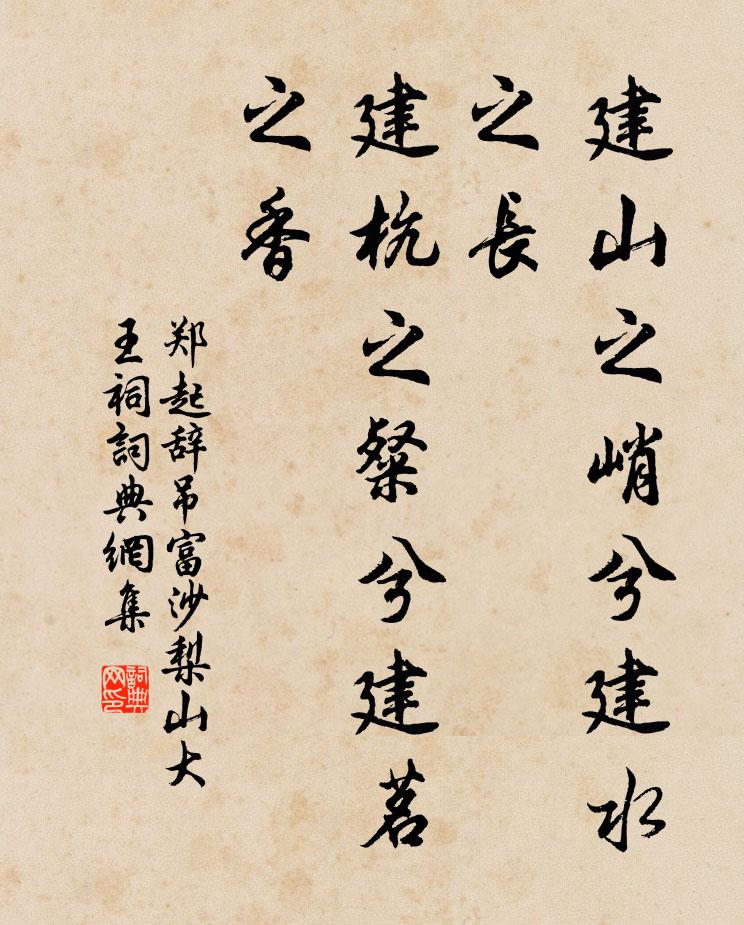 建山之峭兮建水
之長
建杭之粲兮建茗
之香
郑起辞吊富沙梨山大
王祠詞典網集
詞典
网印